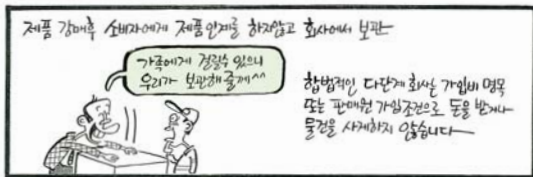 제품 강매후 소비자에게 제품인계를 하지않고 회사에서 보관
가족에게 걸릴수 있으니
우리가 보관해 줄께^^
합법적인 다단계 회사는 가입비 명목
또는 판매원 가입조건으로 돈을 받거나
물건을 사게하지 않습니다